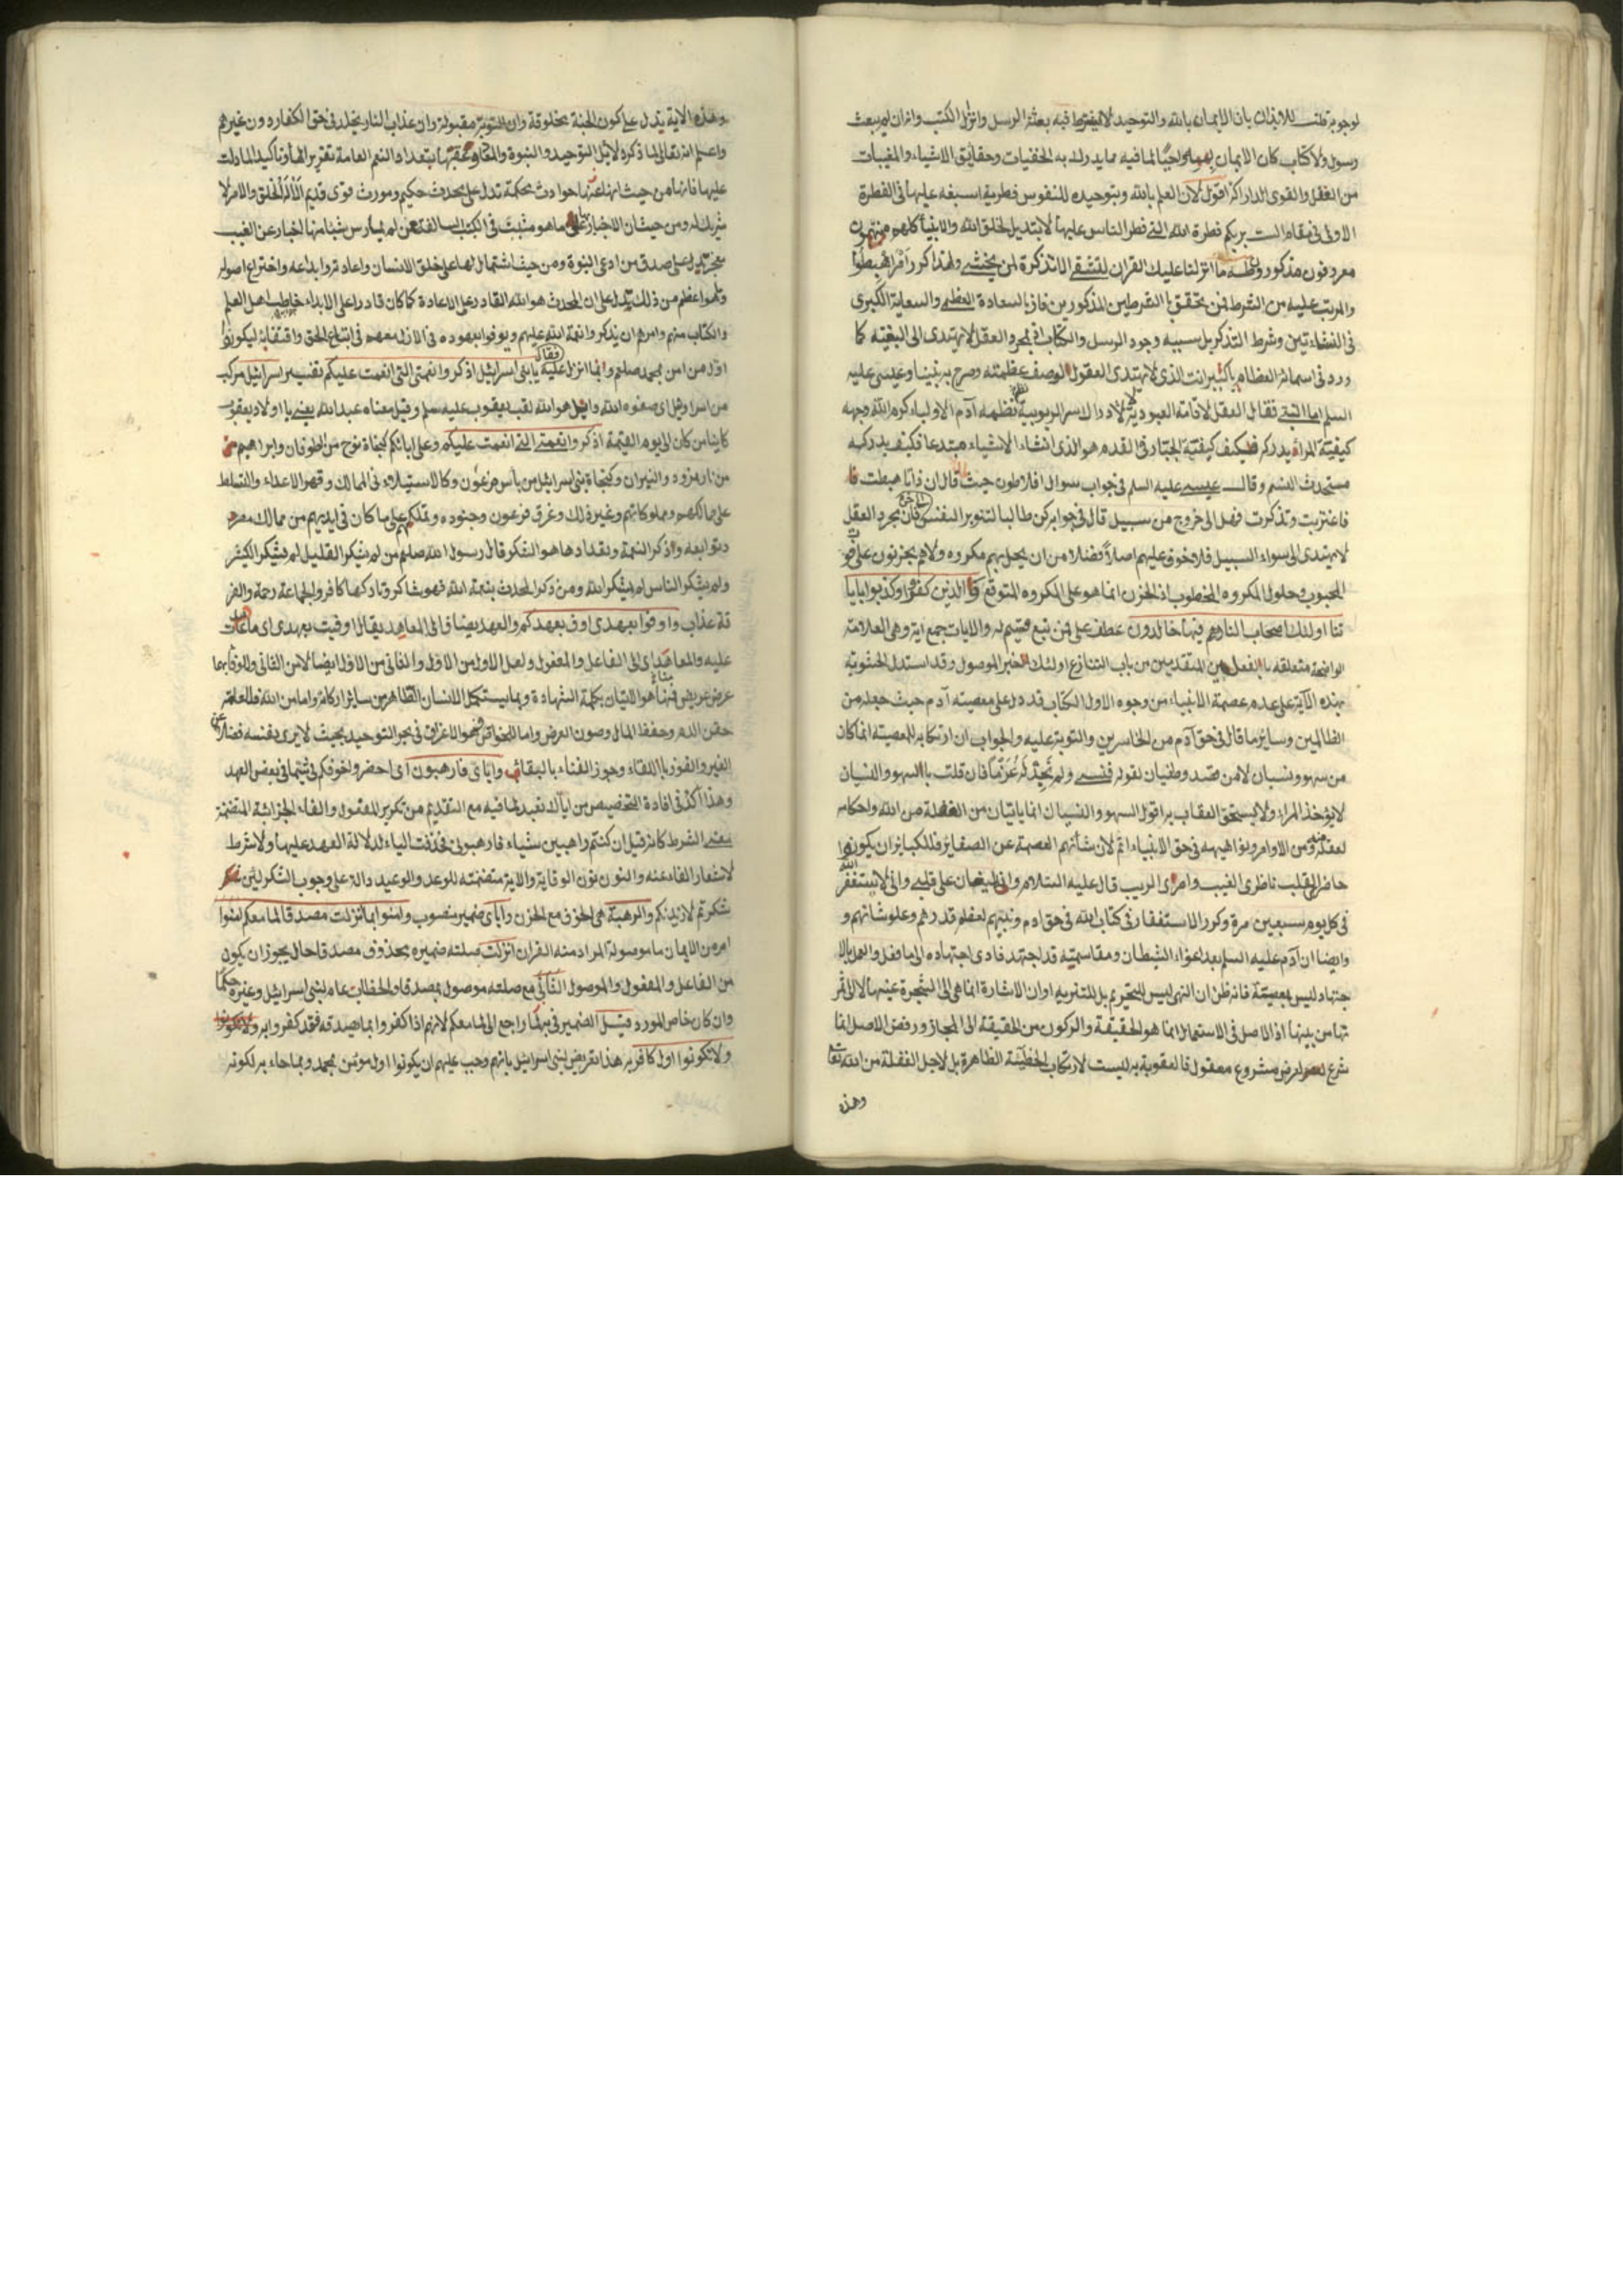 لوجوبه قلت للايذان بان الايمان بالله والتوحيد لا يشترط فيه بعثة الرسل وانزال الكتب وانه ان لم يبعث
رسول ولا كتاب كان الايمان به واجبا لما فيه مما يدرك به الخفيات وحقايق الاشياء والمغيبات
من العقل والقوى الداركة اقول لان العلم بالله وبتوحيده للنفوس فطرية اسبغه عليها في الفطرة
الاولى في مقام الست بربكم فطرة الله التي فطر الناس عليها لا تبديل لخلق الله والانبياء كلهم
معروفون مذكور وطه ما انزلنا عليك القران لتشقى الا تذكرة لمن يخشى ولهذا كرر امر اهبطوا
والمرتب عليه من الشرط فمن تحقق بالشرطين المذكورين فاز بالسعادة العظمى والسعاية الكبرى
في النشاءتين وشرط التذكر بل سببه وجود الرسل والكتاب فمجرد العقل لا يهتدى الى البغية كما
ورد في اسمائه العظام يا كبير انت الذي لا يهتدى العقول لوصف عظمته وصرح به نبينا وعيسى عليه
السلم اما النبي فقال العقل لاقامة العبودية لا لادراك سر الربوبية نظمه آدم الاولياء كرم الله وجهه
كيفية المرء ليس المرء يدركه فكيف كيفية الجبار في القدم هو الذي انشاء الاشياء مبتدعا فكيف يدركه
مستحدث النسم وقال عيسى عليه السلم في جواب سوال افلاطون حيث قال ان ذاتا هبطت فا
فاغتربت وتذكرت فهل الى خروج من سبيل قال في جوابه كن طالبا لتنوير النفس فان مجرد العقل
لا يهتدى الى سواء السبيل فلا خوف عليهم اصلا فضلا من ان يحل بهم مكروه ولا هم يحزنون على فوت
المحبوب وحلول المكروه المخطوب اذ الحزن انما هو على المكروه المتوقع والذين كفروا وكذبوا بايا
تنا اولئك اصحاب النار هم فيها خالدون عطف على فمن تبع قسيم له والايات جمع اية وهى العلامة
الواضحة متعلقه بالفعلين المتقدمين من باب التنازع اولئك الخبر الموصول وقد استدل الحشوية
بهذه الآية على عدم عصمة الانبياء من وجوه الاول الكتاب قد دل على معصية آدم حيث جعله من
الظالمين وساير ما قال في حق آدم من الخاسرين والتوبة عليه والجواب ان ارتكابه المعصية انما كان
من سهو ونسيان لا من قصد وطغيان لقوله فنسي ولم نجد له عزما فان قلت بالسهو والنسيان
لا يؤخذ المراء ولا يستحق العقاب به اقول السهو والنسيان انما ياتيان من الغفلة من الله واحكامه
لعقله ومن الاوامر ونواهيه في حق الانبياء اثم لان شأنهم العصمة عن الصغاير فللكباير ان يكونوا
حاضر القلب ناظرى الغيب قال عليه السلام وانه ليغان على قلبي واني لا يستغفر الله
في كل يوم سبعين مرة وكرر الاستغفار في كتاب الله في حق ادم ونبيهم لعظم قدرهم وعلو شانهم و
وايضا ان آدم عليه السلم بعد اغواء الشيطان ومقاسمته قد اجتهد فادى اجتهاده الى ما فعل والعمل بالا
جتهاد ليس بمعصية فانه ظن ان النهى ليس للتحريم بل للتنزيه او ان الاشارة انما هي الى الشجرة عينها لا الى ثمر
تها من بينها اذ الاصل في الاستعمال انما هو الحقيقة والركون من الحقيقة الى المجاز ورفض الاصل انما
شرع لغرض مشروع معقول فالعقوبة به ليست لارتكاب الخطيئة الظاهرة بل لاجل الغفلة من الله تعالى
وهذه
وهذه الاية تدل على كون الجنة مخلوقة وان التوبة مقبولة وان عذاب النار مخلد في حق الكفار دون غيرهم
واعلم انه تعالى لما ذكر دلائل التوحيد والنبوة والمعاد عقبها بتعداد النعم العامة تقريرا لها وتأكيدا لما دلت
عليها فانها من حيث انها حوادث محكمة تدل على محدث حكيم ومورث قوى قديم الا له الخلق والامر لا
شريك له ومن حيث ان الاخبار على ما هو مثبت في الكتب السالفة عن لم يمارس شيئا منها اخبار عن الغيب
معجز يدل على صدق من ادعى النبوة ومن حيث اشتمالها على خلق الانسان واعادته وابداعه واختراع اصوله
وما هو اعظم من ذلك يدل على ان المحدث هو الله القادر على الاعادة كما كان قادرا على الابداء خاطب اهل العلم
والكتاب منهم وامرهم ان يذكروا نعمة الله عليهم ويوفوا بعهوده في الازل معهم في اتباع الحق واقتفائه ليكونوا
اول من امن بمحمد صلعم وانما انزل عليه فقال يا بنى اسرائيل اذكروا نعمتى التي انعمت عليكم تفسير اسرائيل مركب
من اسرا وئيل اى صفوه الله وايل هو الله لقب يعقوب عليه سلم وقيل معناه عبد الله يعنى يا اولاد يعقوب
كاينا من كان الى يوم القيمة اذكروا نعمتي التي انعمت عليكم وعلى ابائكم كنجاة نوح من الطوفان وابراهيم
من نار نمرود والنيران وكنجاة بنى اسرائيل من بأس فرعون وكالاستيلاء في الممالك وقهر الاعداء والتسلط
على ممالكهم ومملوكاتهم وغير ذلك وغرق فرعون وجنوده وتملككم على ما كان في ايديهم من ممالك مصر
وتوابعه واذكر النعمة وتعدادها هو الشكر قال رسول الله صلعم من لم يشكر القليل لم يشكر الكثير
ولم يشكر الناس لم يشكر الله ومن ذكر المحدث بنعمة الله فهو شاكر وتاركها كافر والجماعة رحمة والفر
قة عذاب واوفوا بعهدى اوف بعهدكم والعهد يضاف الى المعاهد يقال اوفيت بعهدى اى ما عاهدت
عليه والمعاهد اى الى الفاعل والمفعول ولعل الاول من الاول والثاني من الاول ايضا لا من الثاني وللوفاء بهما
عرض عريض فمنا هو الاتيان بكلمة الشهادة وبما يستكمل الانسان الظاهر من ساير اركانه واما من الله
حقن الدم وحفظ المال وصون العرض واما للخواص فهو الاغراق في بحر التوحيد بحيث لا يرى نفسه فضلا عن
الغير والفوز باللقاء وجوز الفناء بالبقاء واياى فارهبون اى احضروا خوفكم في نقض العهد
وهذا آكد في افادة التخصيص من اياك نعبد لما فيه مع التقديم من تكرير المفعول والفاء الجزائية المتضمنة
معنى الشرط كانه قيل ان كنتم راهبين شياء فارهبونى فحذفت الياء لدلالة العهد عليها ولا شرط
لاشعار الفاء عنه والنون نون الوقاية والاية متضمنة للوعد والوعيد دالة على وجوب الشكر لئن
شكرتم لازيدنكم والرهبة هى الخوف مع الحزن واياى ضمير منصوب وامنوا بما انزلت مصدقا لما معكم امنوا
امر من الايمان ما موصولة المراد منه القران انزلت صلته ضميره محذوف مصدقا حال يجوز ان يكون
من الفاعل والمفعول والموصول الثاني مع صلته موصول بمصدقا والخطاب عام لبنى اسرائيل وغيره حكما
وان كان خاص المورد قيل الضمير في به لما راجع الى لما معكم لانهم اذا كفروا بما يصدقه فقد كفروا به ولا تكونوا
ولا تكونوا اول كافر به هذا تعريض لبنى اسرائيل بانهم وجب عليهم ان يكونوا اول مؤمن بمحمد وبما جاء به لكونه